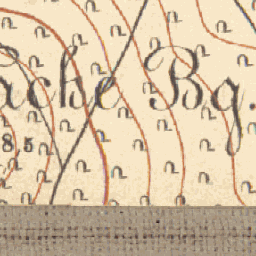 ache Bg.
8.5